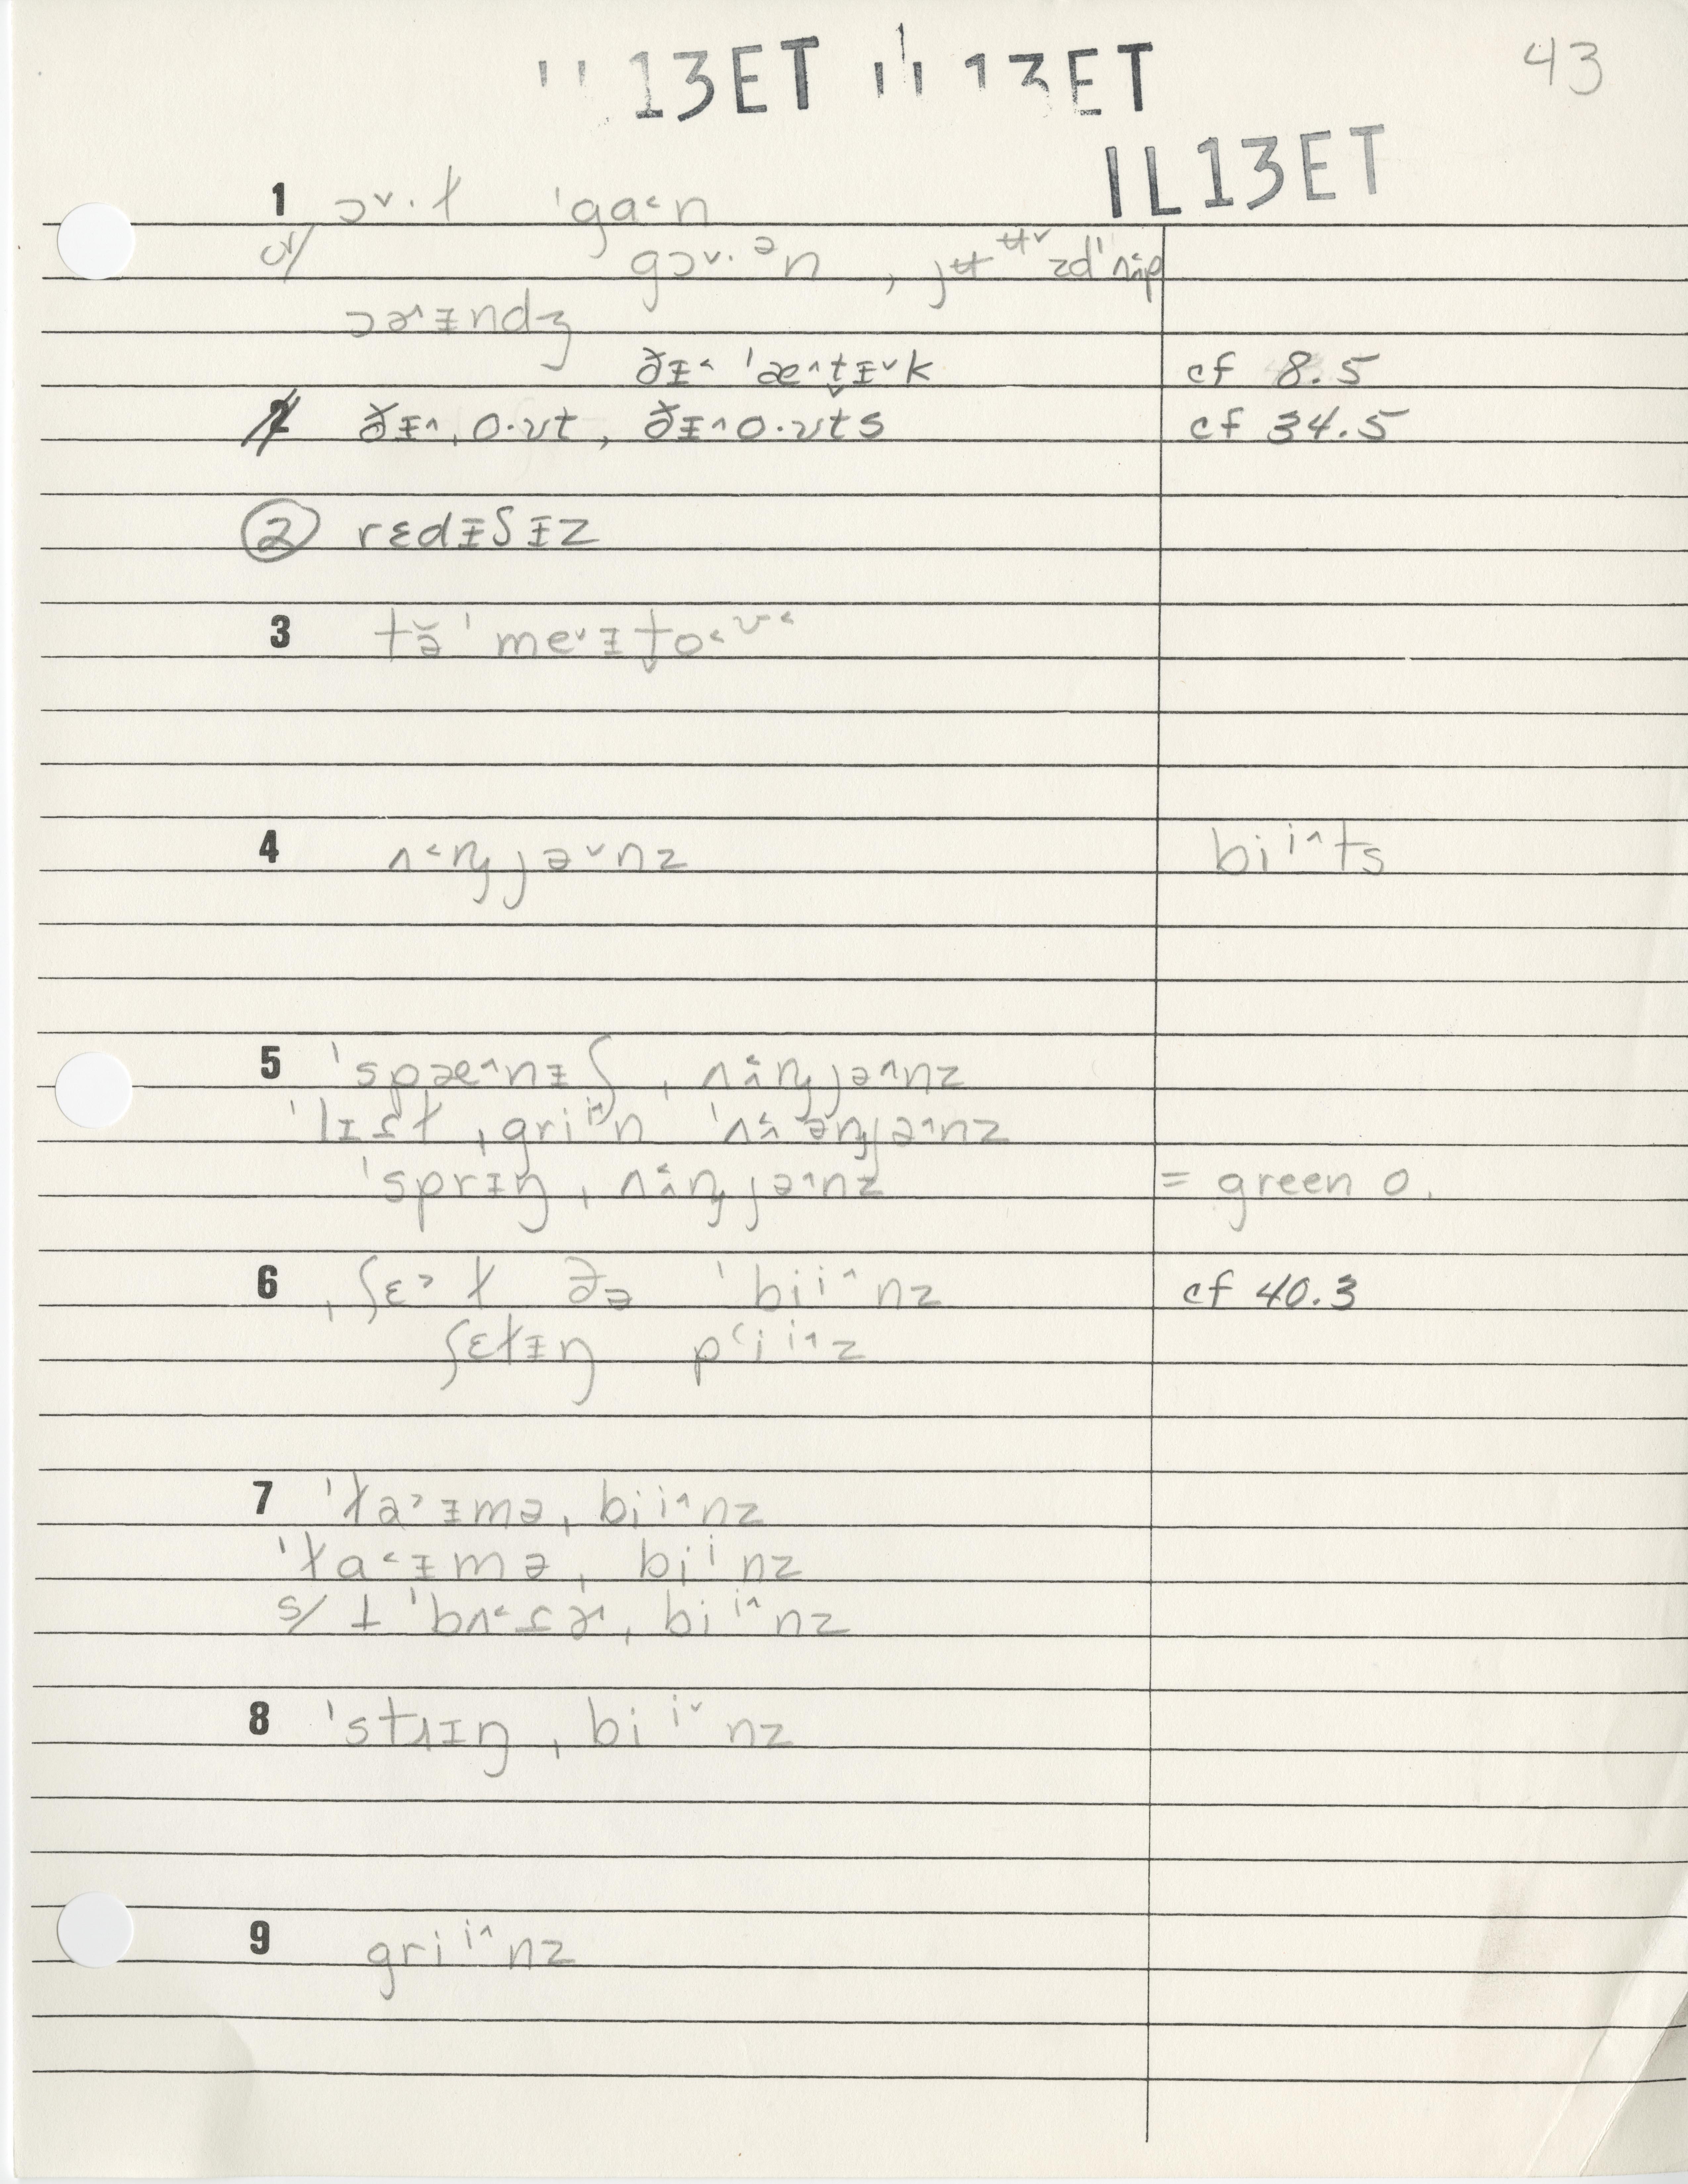 13ET 13ET 43
IL13ET
1 ɔ˅·ɫ ˈga˂n
cr/ gɔ˅·ᵊn ,
ɔɚ˄ɪndʒ
ðɪ˂ ˈæ˄t̬ɪ˅k cf 8.5
ðɪ˄ ˌo·ʊt, ðɪ˄o·ʊts cf 34.5
② rɛdɪʃɪz
3 tə̆ ˈme˅ɪt̬o˂ᶷ˂
4 ʌ˂ɲjə˅nz biⁱ˄ts
5 ˈspæ˄nɪʃ ˌʌ̃˂ɲjə˄nz
ˌgriⁱ˄n
ˈsprɪŋ ˌʌ̃˂ɲjə˄nz = green o.
6 ˌʃɛ˃ɫ ðə ˈbiⁱ˄nz cf 40.3
ʃɛɫɪŋ pʻiⁱ˄z
7 ˈɫa˃ɪmə ˌbiⁱ˄nz
ˈɫa˂ɪmə ˌbiⁱnz
s/ ˌbiⁱ˄nz
8 ˈstɹɪŋ ˌbiⁱ˅nz
9 griⁱ˄nz